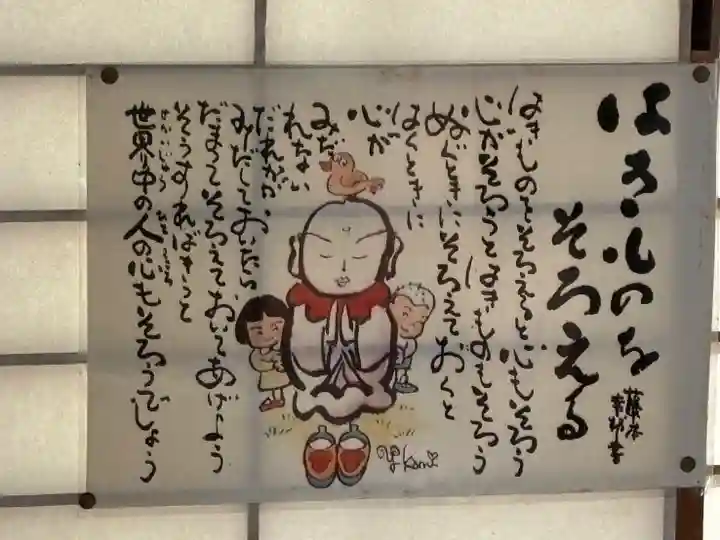 はきものを
そろえる
藤本幸邦書
はきものをそろえると心もそろう
心がそろうとはきものもそろう
ぬぐときにそろえておくと
はくときに
心が
みだ
れない
だれかが
みだしておいたら
だまってそろえておいてあげよう
そうすればきっと
世界中の人の心もそろうでしょう